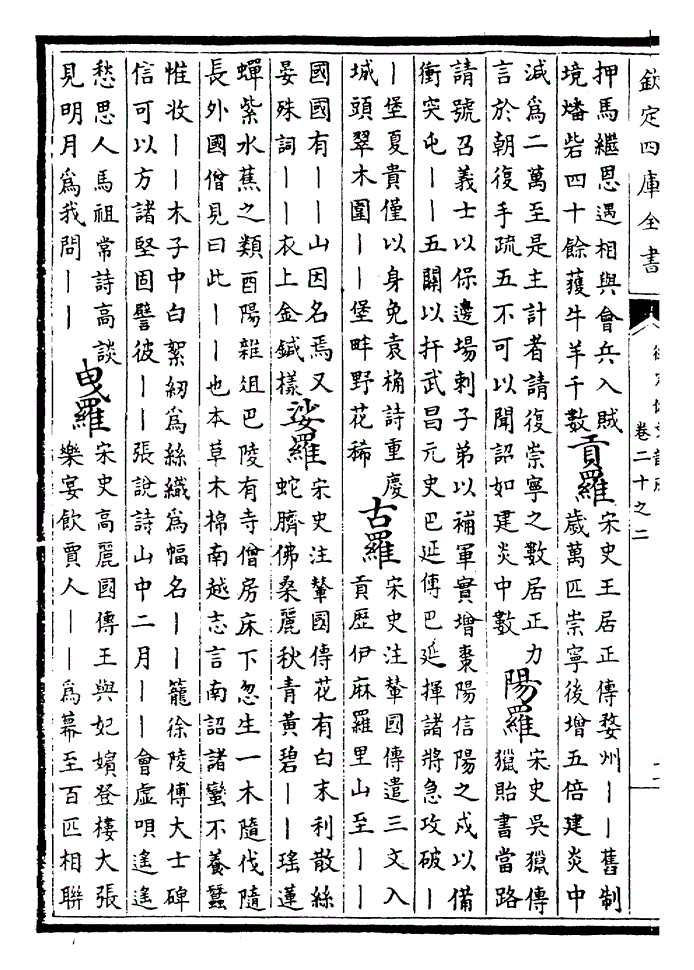 欽定四庫全書
卷二十之二
押馬繼恩遇相與會兵入賊
境燔砦四十餘獲牛羊千數
貢羅
宋史王居正傳婺州丨丨舊制
歲萬匹崇寧後增五倍建炎中
減爲二萬至是主計者請復崇寧之數居正力
言於朝復手疏五不可以聞詔如建炎中數
陽羅
宋史吳獵傳
獵貽書當路
請號召義士以保邊場刺子弟以補軍實增棗陽信陽之戍以備
衝突屯丨丨五關以扞武昌元史巴延傳巴延揮諸將急攻破丨
丨堡夏貴僅以身免袁桷詩重慶
城頭翠木圍丨丨堡畔野花稀
古羅
宋史注輦國傳遣三文入
貢歷伊麻羅里山至丨丨
國國有丨丨山因名焉又
晏殊詞丨丨衣上金鍼樣
娑羅
宋史注輦國傳花有白末利散絲
蛇臍佛桑麗秋青黃碧丨丨瑤蓮
蟬紫水蕉之類酉陽雜俎巴陵有寺僧房床下忽生一木隨伐隨
長外國僧見曰此丨丨也本草木棉南越志言南詔諸蠻不養蠶
惟收丨丨木子中白絮紉爲絲織爲幅名丨丨籠徐陵傅大士碑
信可以方諸堅固譬彼丨丨張說詩山中二月丨丨會虛唄遙遙
愁思人馬祖常詩高談
見明月爲我問丨丨
曳羅
宋史高麗國傳王與妃嬪登樓大張
樂宴飲賈人丨丨爲幕至百匹相聯